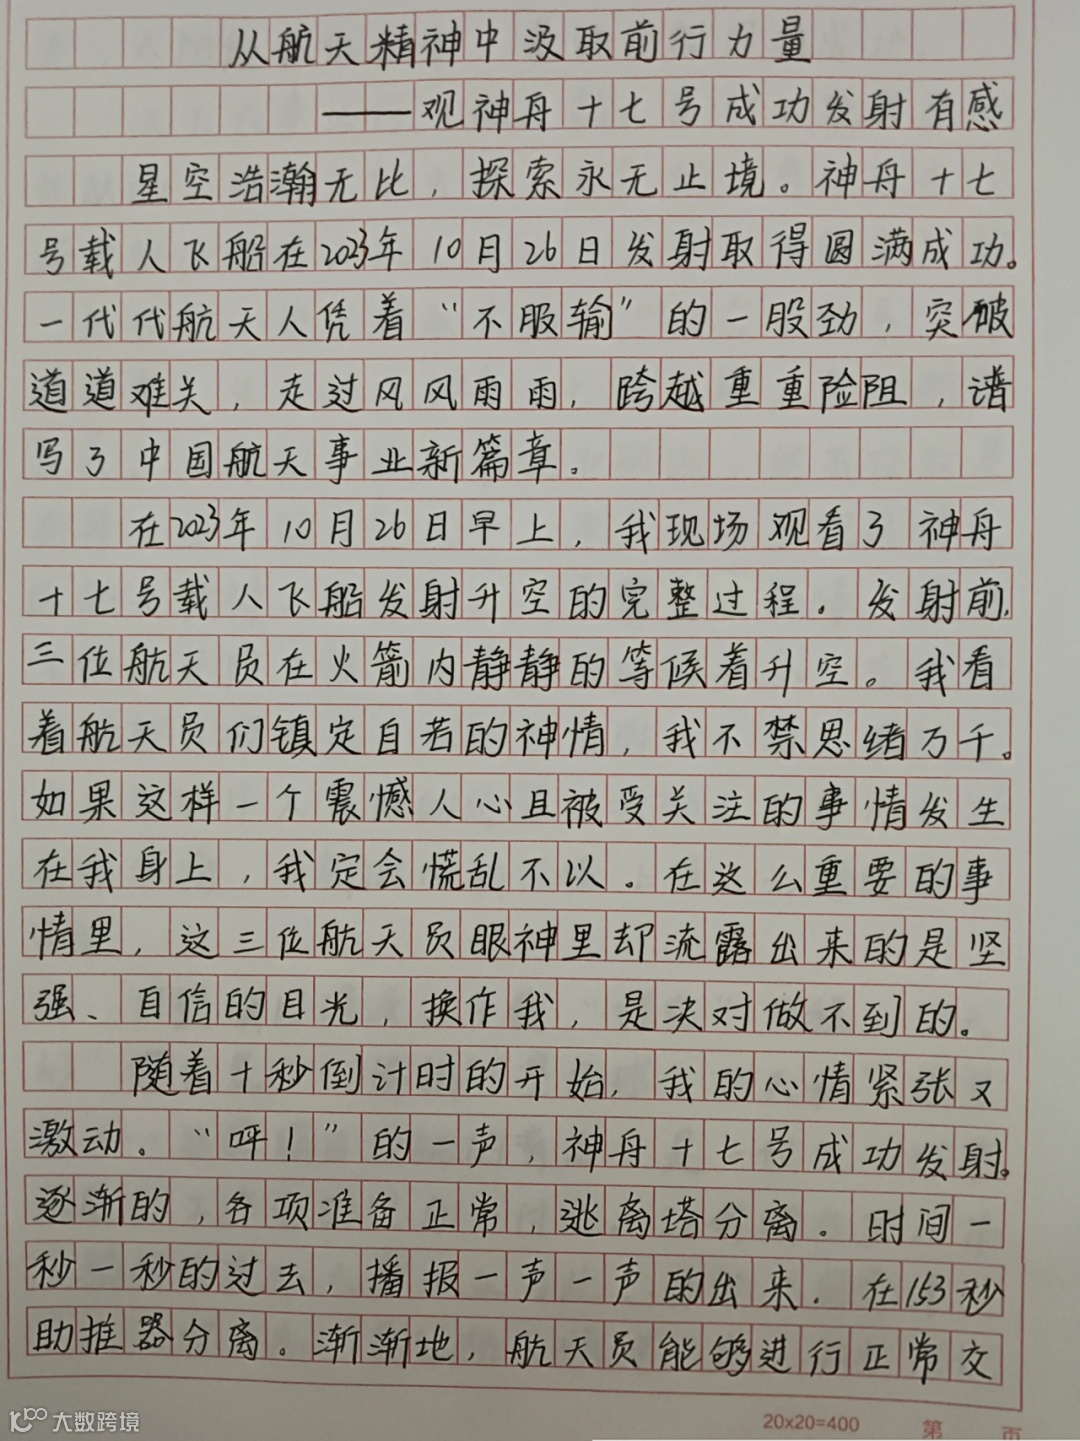 从航天精神中汲取前行力量
——观神舟十七号成功发射有感
星空浩瀚无比，探索永无止境。神舟十七
号载人飞船在2023年10月26日发射取得圆满成功。
一代代航天人凭着“不服输”的一股劲，突破
道道难关，走过风风雨雨，跨越重重险阻，谱
写了中国航天事业新篇章。
在2023年10月26日早上，我现场观看了神舟
十七号载人飞船发射升空的完整过程。发射前，
三位航天员在火箭内静静的等候着升空。我看
着航天员们镇定自若的神情，我不禁思绪万千。
如果这样一个震憾人心且被受关注的事情发生
在我身上，我定会慌乱不以。在这么重要的事
情里，这三位航天员眼神里却流露出来的是坚
强、自信的目光，换作我，是决对做不到的。
随着十秒倒计时的开始，我的心情紧张又
激动。“呯！”的一声，神舟十七号成功发射。
逐渐的，各项准备正常，逃离塔分离。时间一
秒一秒的过去，播报一声一声的出来。在153秒
助推器分离。渐渐地，航天员能够进行正常交
大数跨境
20x20=400 第 页